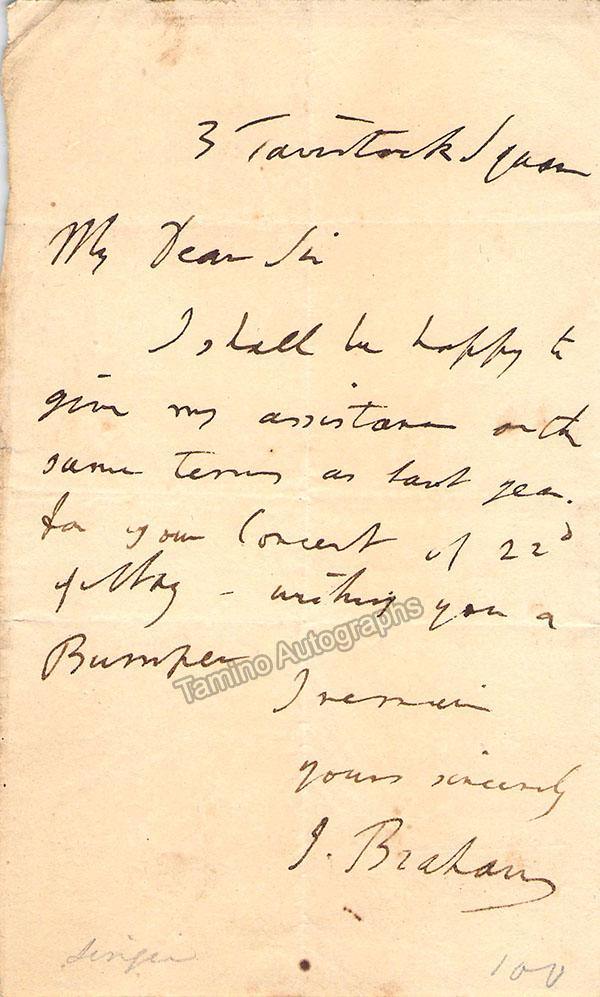 3 Tavistock Square
My Dear Sir
I shall be happy to
give my assistance on the
same terms as last year.
for your Concert of 22d
of May - wishing you a
Bumper
Tamino Autographs
I remain
yours sincerely
J. Braham
singer
100